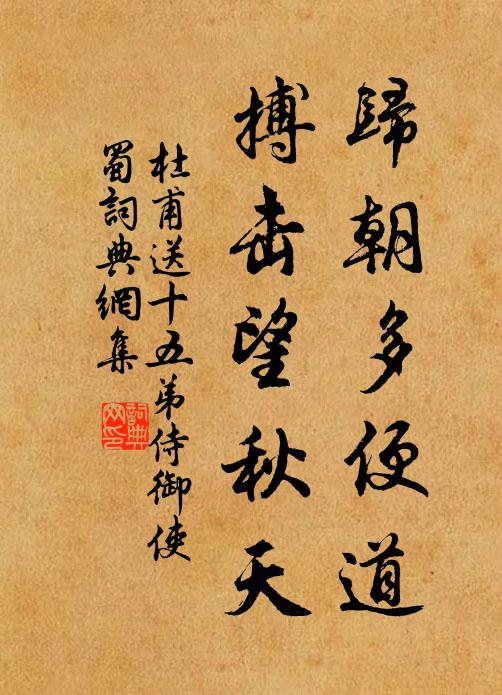 歸朝多便道
搏击望秋天
杜甫送十五弟侍御使
蜀詞典網集
詞典
网印